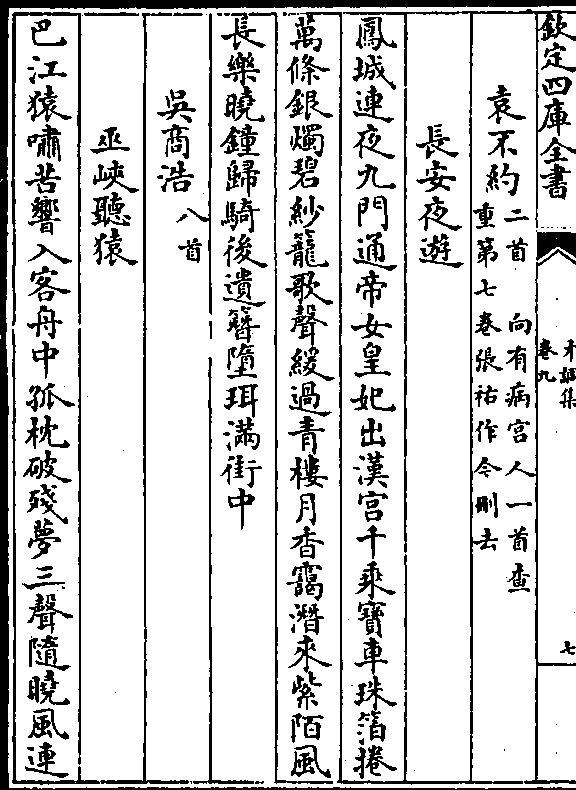 欽定四庫全書
才調集
卷九
七
袁不約二首 向有病宫人一首查
重第七卷張祐作今刪去
長安夜遊
鳳城連夜九門通帝女皇妃出漢宫千乘寶車珠箔捲
萬條銀燭碧紗籠歌聲緩過青樓月香靄潛來紫陌風
長樂曉鐘歸騎後遺簪墮珥滿街中
吳商浩八首
巫峽聽猿
巴江猿嘯苦響入客舟中孤枕破殘夢三聲隨曉風連